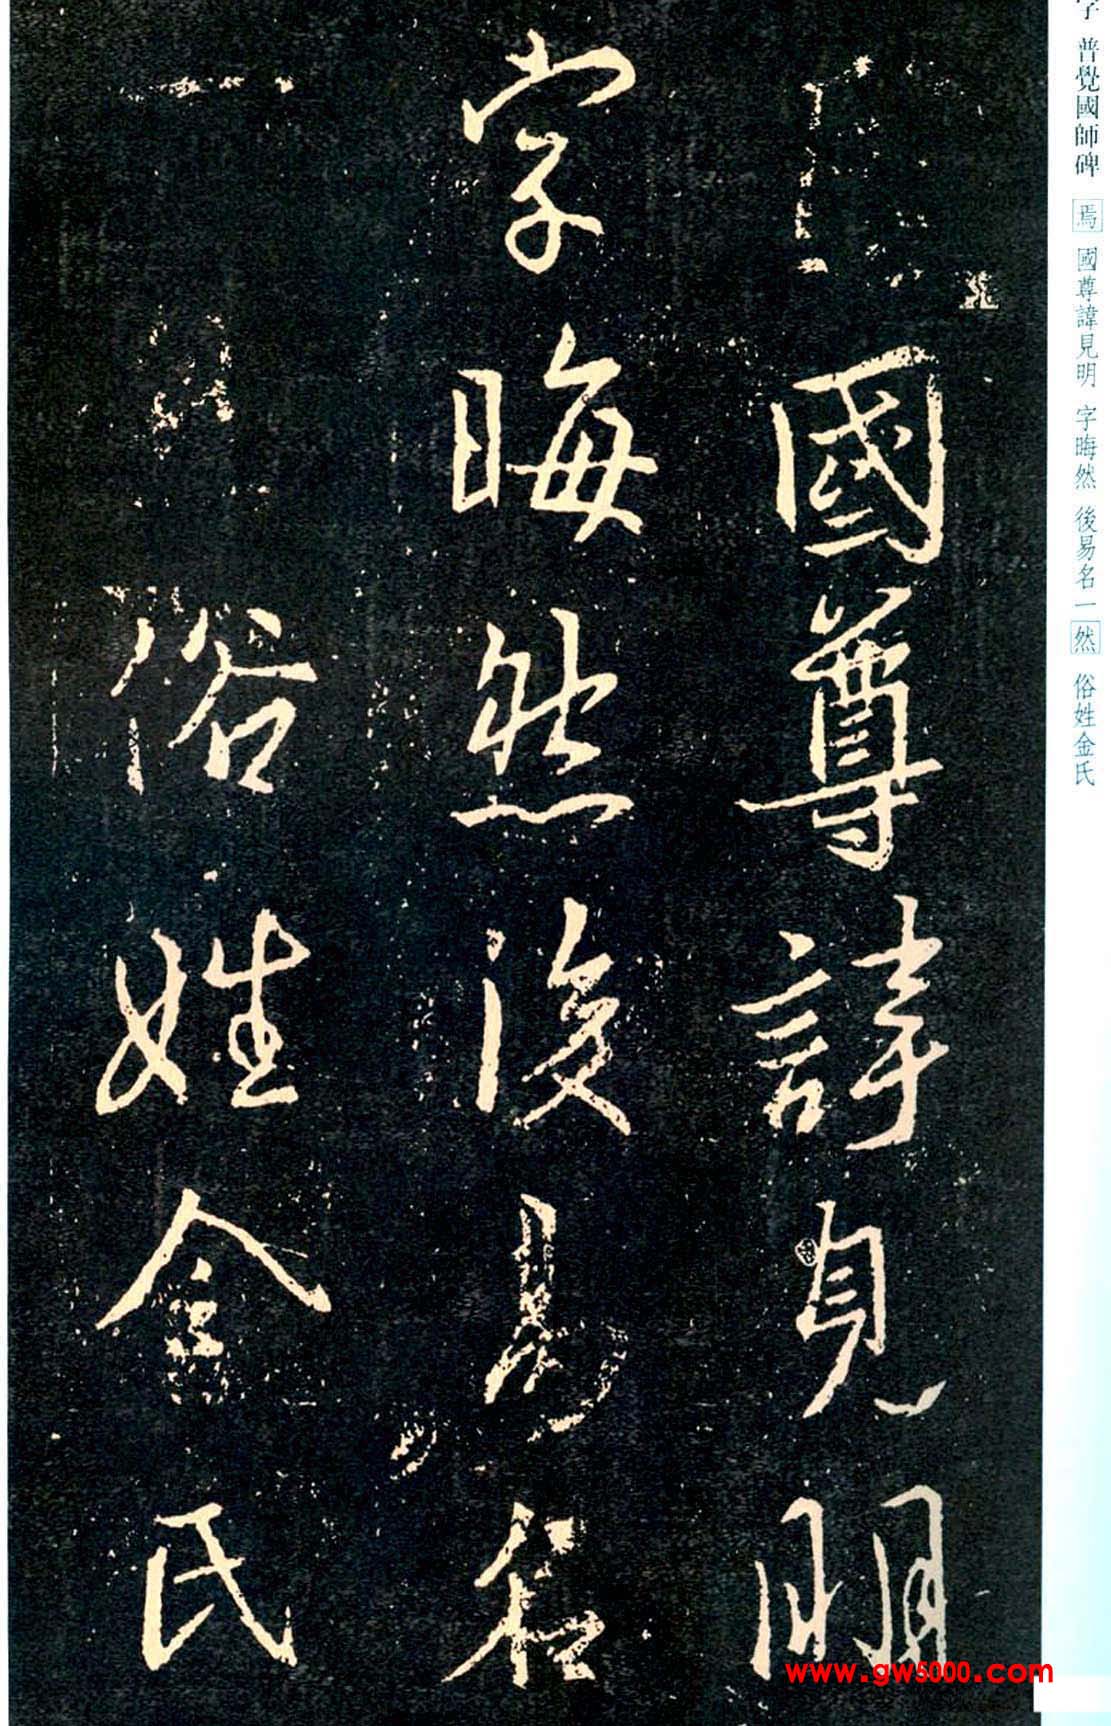 國尊諱見明
字晦然後易名
一
俗姓金氏
普覺國師碑 焉 國尊諱見明 字晦然 後易名一然 俗姓金氏
www.gw5000.com